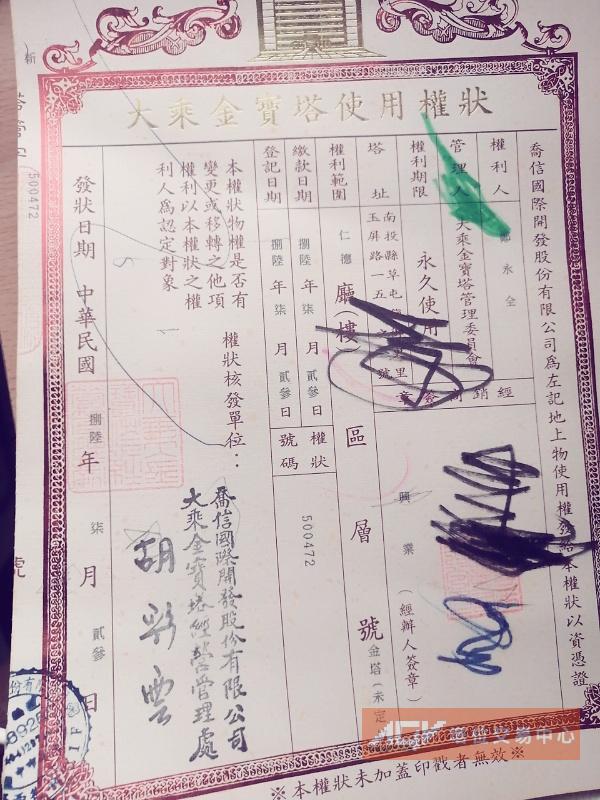 大乘金寶塔使用權狀
喬信國際開發股份有限公司為左記地上物使用權發給本權狀以資憑證
權利人
永全
管理人
大乘金寶塔管理委員會
權利期限
永久使用
塔址
南投縣草屯
玉屏路一五
里
號
經銷商簽章
興業
(經辦人簽章)
權利範圍
仁德廳(樓)
區
層
號
金塔(未定
繳款日期
捌陸年柒月貳參日
登記日期
捌陸年柒月貳參日
權狀號碼
500472
本權狀物權是否有
變更或移轉之他項
權利以本權狀之權
利人為認定對象
權狀核發單位：
喬信國際開發股份有限公司
大乘金寶塔經營管理處
胡彩雲
發狀日期 中華民國捌陸年柒月貳參日
※本權狀未加蓋印戳者無效※
500472
號
新
交易中心